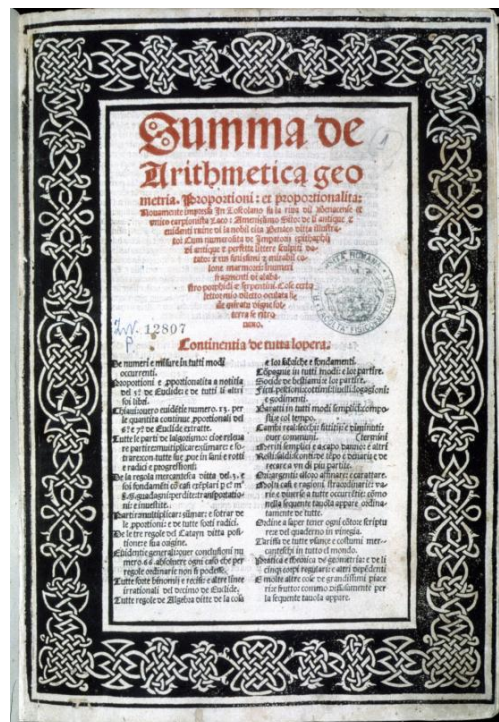 Summa de
Arithmetica geo
metria. Proportioni: et proportionalita:
Novamente impressa In Toscolano su la riva dil Benacense et
unico carpionista Laco: Amenissimo Sito: de li antique et
evidenti ruine di la nobil cita Benaco ditta illustra-
to: Cum numerosita de Imperatorii epithaphii
di antique et perfette littere sculpiti do-
tato: et cum finissimi et mirabil co-
lone marmorei: inumeri
fragmenti di alaba-
stro porphidi et serpentini. Cose certo
lettor mio diletto oculata fi-
de miratu digne sot-
terra se ritro
vano.
Inv. 12807
P.
1
Continentia de tutta lopera.
De numeri e misure in tutti modi
occurrenti.
Proportioni e pportionalita a notitia
del 5º de Euclide: e de tutti li altri
soi libri.
Chiavi overo evidētie numero .13. per
le quantita continue pportionali del
6º e 7º de Euclide extratte.
Tutte le parti de lalgorismo: cioe releva
re. partire. multiplicar. sūmare: e so-
trare. con tutte sue pve in sani e rotti
e radici e progressioni.
De la regola mercantesca ditta del .3. e
soi fondamēti
guadagni perdite: transportatio-
ni: e investite.
Partir. multiplicar: sūmar: e sotrar de
le pportioni: e de tutte sorti radici.
De le tre regole del Catayn ditta posi-
tione e sua origine.
Evidentie generali over conclusioni nu-
mero 66. absolvere ogni caso che per
regole ordinarie non si podesse.
Tutte sorte binomii e recisi e altre linee
irrationali del decimo de Euclide.
Tutte regole de Algebra ditte de la cosa
e lor fabriche e fondamenti.
Cōpagnie in tutti modi: e lor partire.
Socide de bestiami: e lor partire.
Fitti: pesciōi: cottimi: livelli: logagioni:
e godimenti.
Baratti in tutti modi semplici: compo-
sti: e col tempo.
Cambi reali. secchi. fittitii: e diminuti:
over communi.
Meriti semplici e a capo danno: e altri
termini
Resti. saldi. sconti: de tēpo e denari: e de
recare a un di piu partite.
Ori: argenti: e lloro affinare: e carattare.
Molti casi e ragioni straordinarie: va-
rie e diverse a tutte occurrētie: cōmo
nella sequente tavola appare ordina-
tamente de tutte.
Ordine a saper tener ogni cōto: e scriptu
re: e del quaderno in vinegia.
Tariffa de tutte usance e costumi mer-
canteschi in tutto el mondo.
Pratica e theorica de geometria: e de li
cinqz corpi regulari: e altri dependēti
E molte altre cose de grandissimi piace
ri: e frutto: commo diffusamente per
la sequente tavola appare.